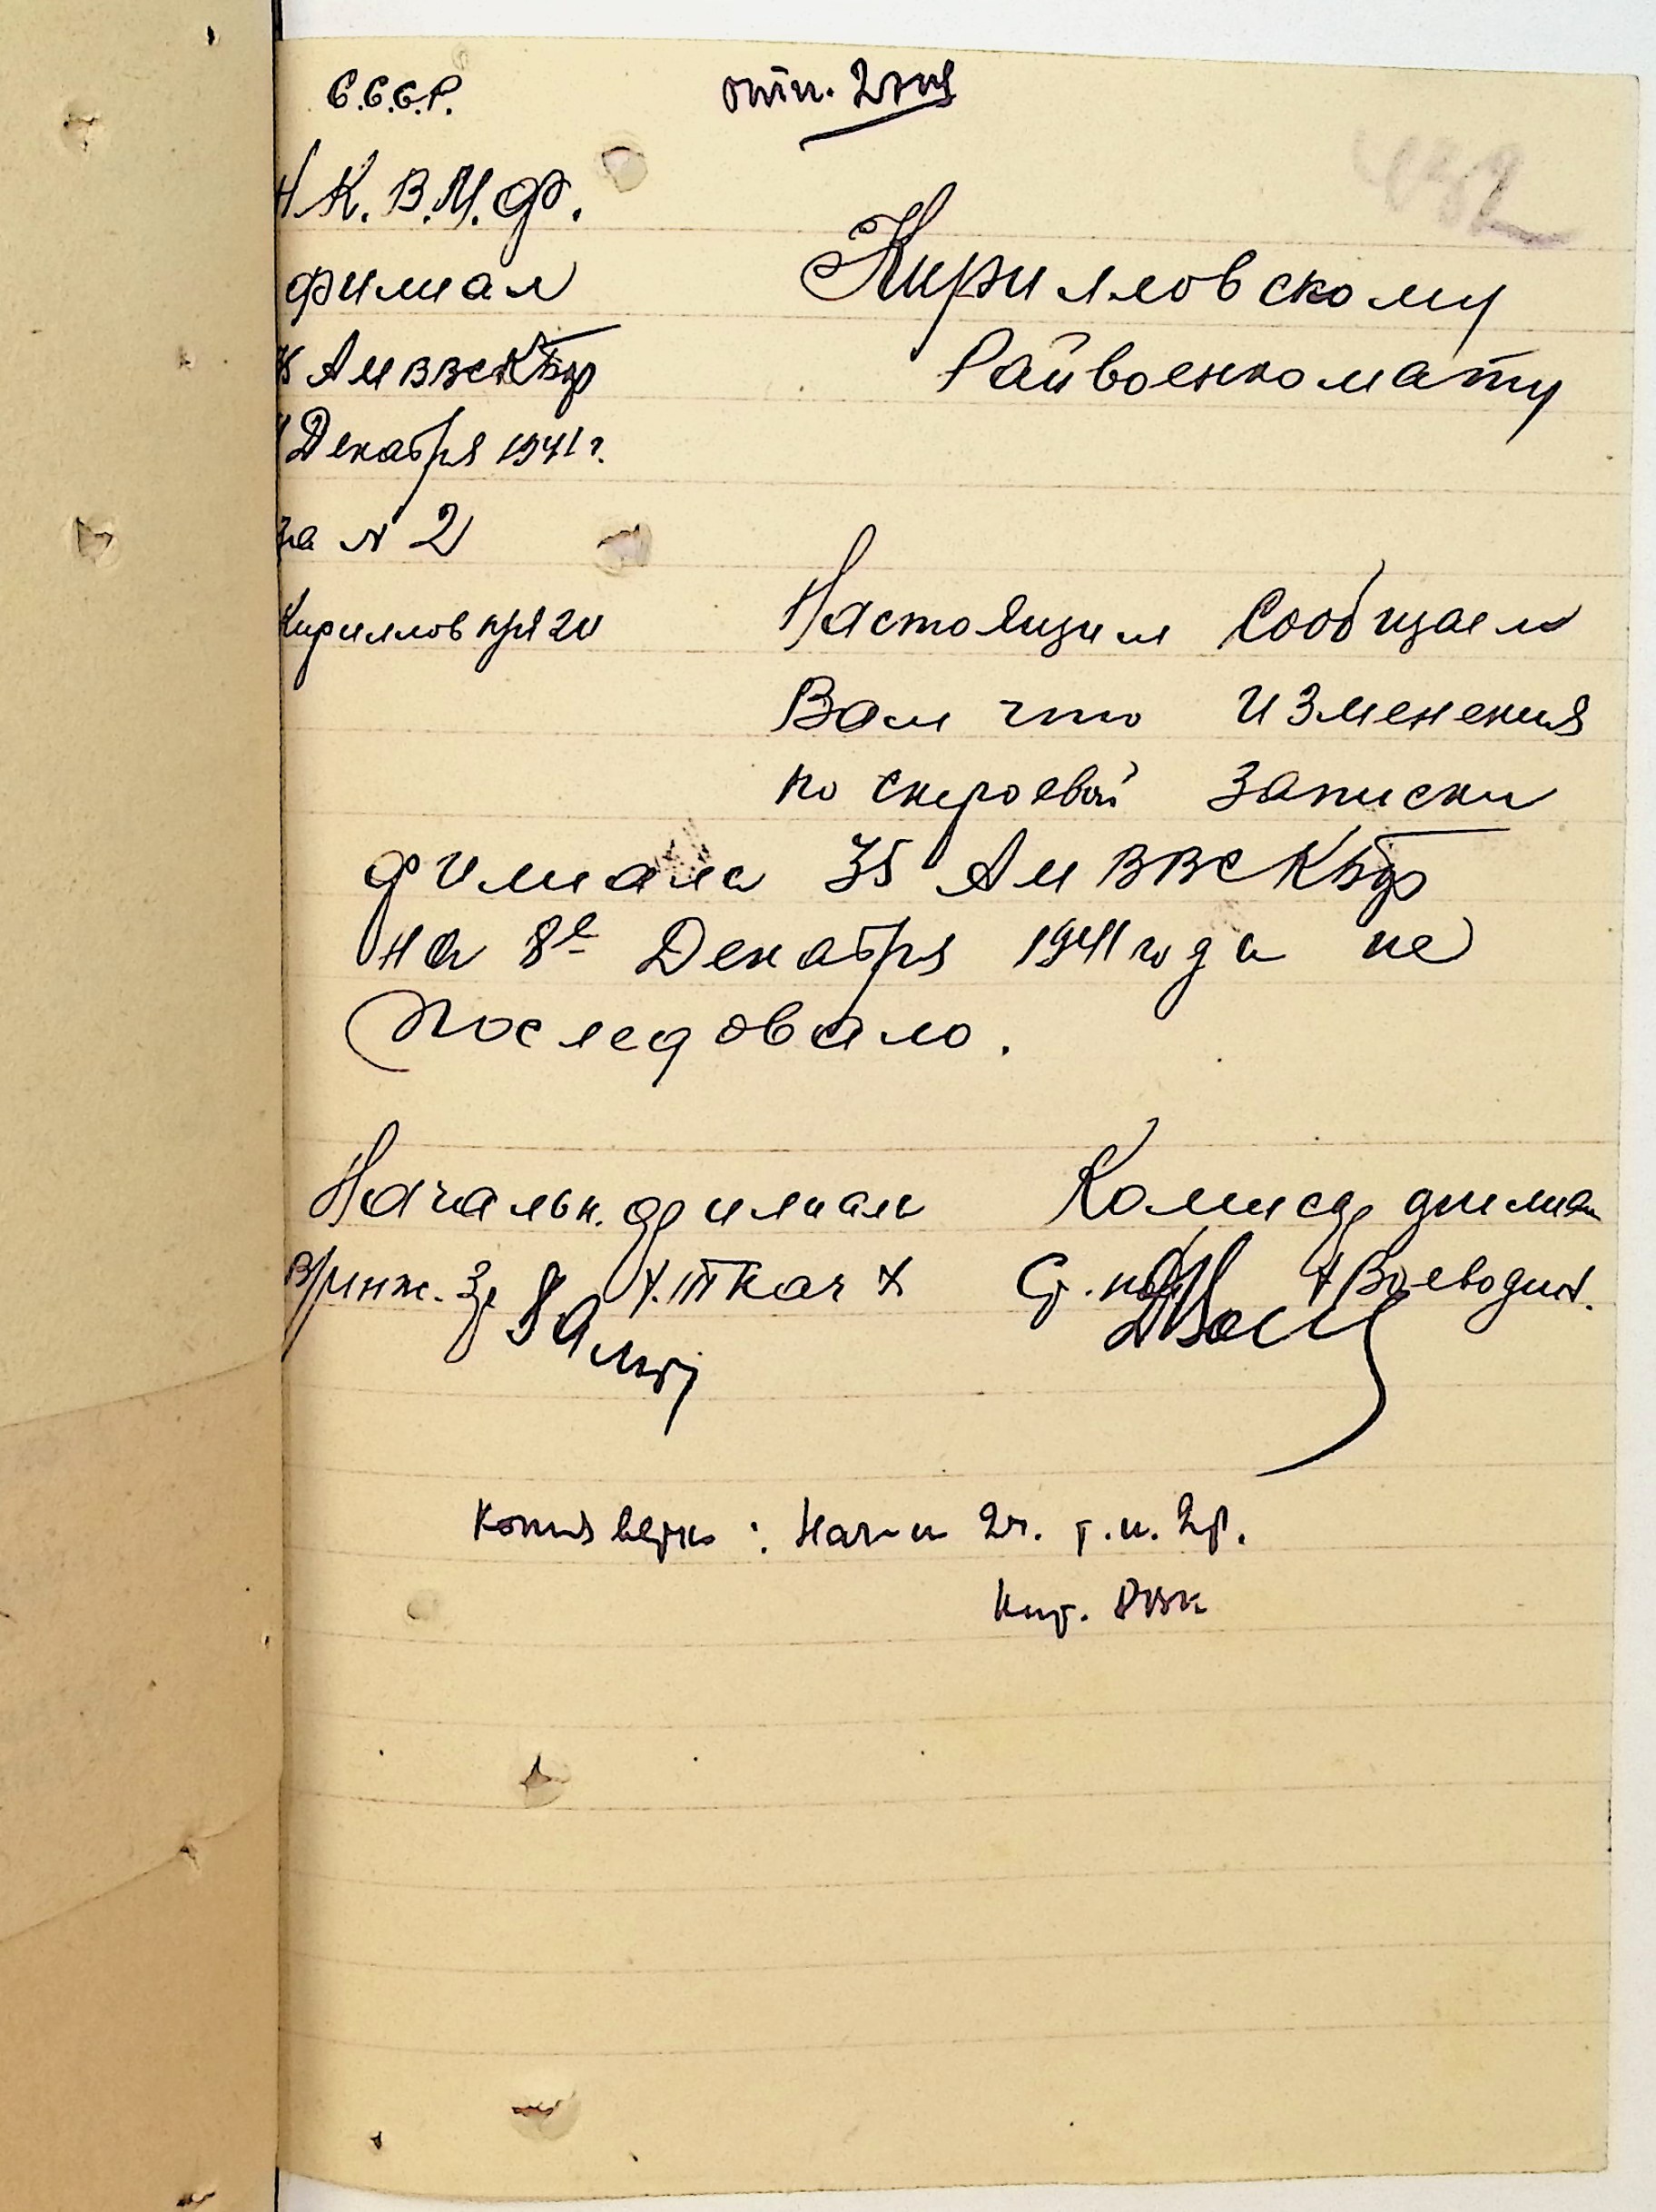 С.С.С.Р.
Н.К.В.М.Ф.
филиал
АМ ВВС КБФ
Декабря 1941 г.
за № 2
Кириллов
Кирилловскому
Райвоенкомату
Настоящим Сообщаем
Вам что изменения
по строевой записки
филиала 35 АМ ВВС КБФ
на 8е Декабря 1941 года не
последовало.
Начальн. филиала Комисар филиала
Ткач Воеводин
Копия верна: Нач-к 2ч.
Кир. РВК